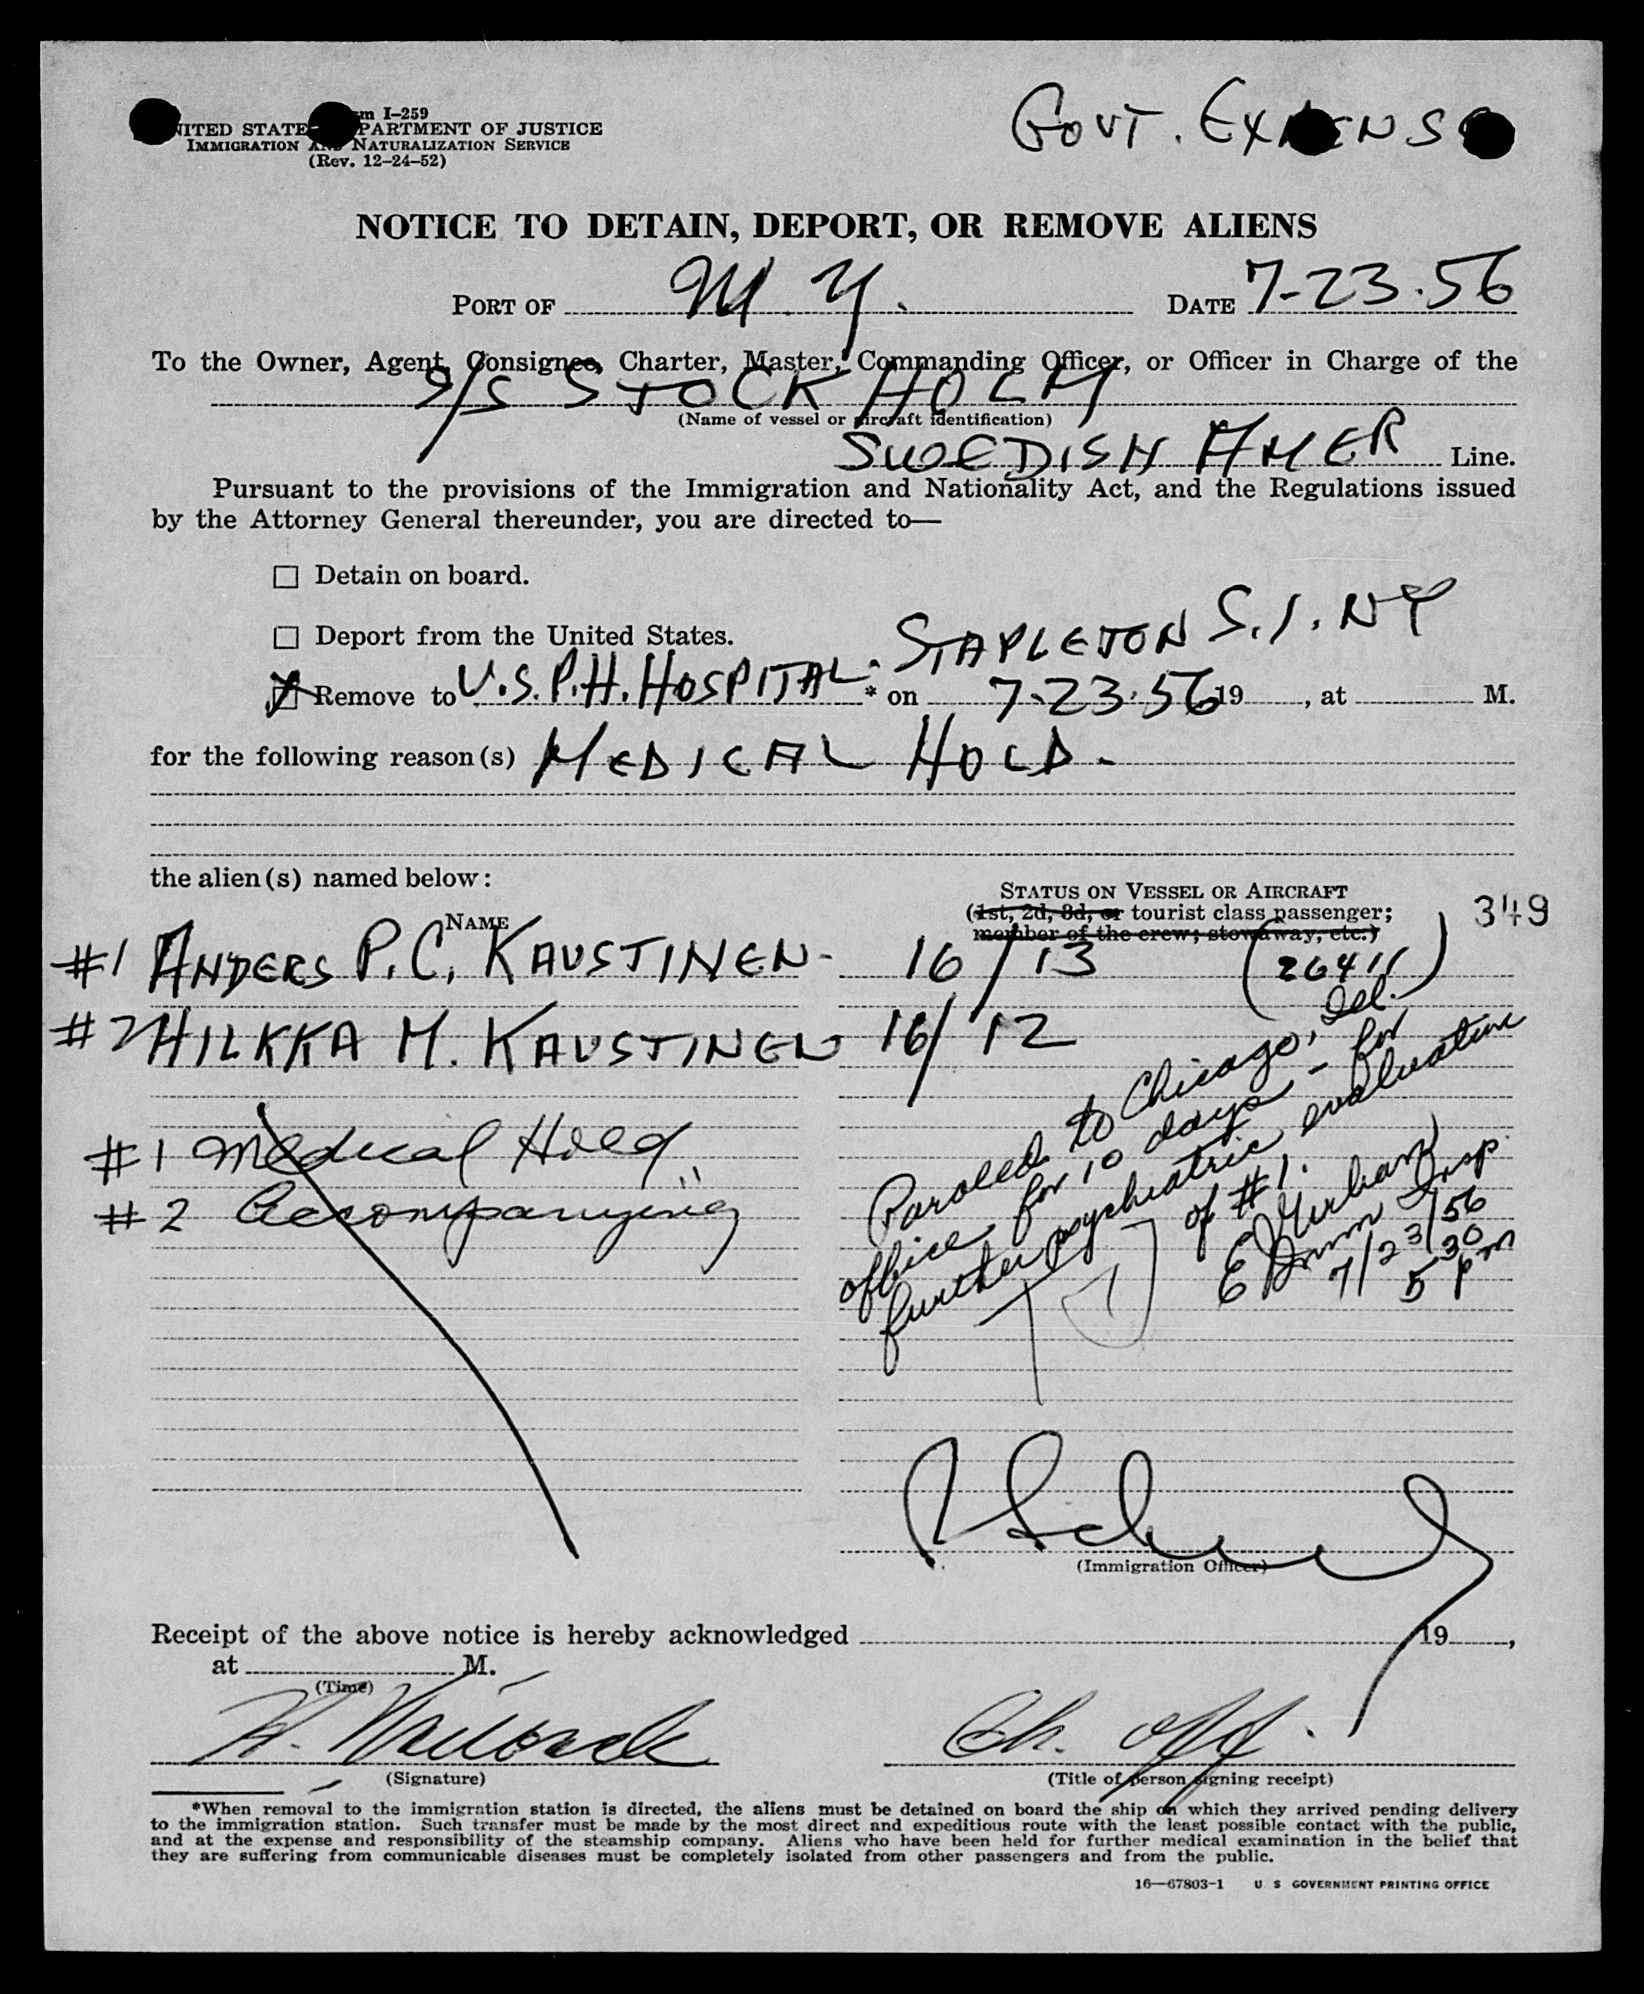 m I-259
NITED STATE PARTMENT OF JUSTICE
IMMIGRATION AND NATURALIZATION SERVICE
(Rev. 12-24-52)
GOVT. EXPENSE
NOTICE TO DETAIN, DEPORT, OR REMOVE ALIENS
PORT OF N.Y. DATE 7-23-56
To the Owner, Agent, Consignee, Charter, Master, Commanding Officer, or Officer in Charge of the
S/S STOCKHOLM
(Name of vessel or aircraft identification)
SWEDISH AMER Line.
Pursuant to the provisions of the Immigration and Nationality Act, and the Regulations issued
by the Attorney General thereunder, you are directed to—
☐ Detain on board.
☐ Deport from the United States.
STAPLETON S.I. NY
☒ Remove to U.S.P.H. HOSPITAL. * on 7-23-56 19 , at M.
for the following reason(s) MEDICAL HOLD.
the alien(s) named below:
NAME
STATUS ON VESSEL OR AIRCRAFT
(1st, 2d, 3d, or tourist class passenger;
member of the crew; stowaway, etc.)
349
#1 ANDERS P.C. KAUSTINEN - 16/13 (26411)
#2 HILKKA M. KAUSTINEN 16/12
#1 Medical Hold
#2 Accompanying "
Paroled to Chicago, Ill.
office for 10 days - for
further psychiatric evaluation
of #1.
Imm Insp
7/23/56
5 30 pm
(Immigration Officer)
Receipt of the above notice is hereby acknowledged 19 ,
at M.
(Time)
Ch. Off.
(Signature)
(Title of person signing receipt)
*When removal to the immigration station is directed, the aliens must be detained on board the ship on which they arrived pending delivery
to the immigration station. Such transfer must be made by the most direct and expeditious route with the least possible contact with the public,
and at the expense and responsibility of the steamship company. Aliens who have been held for further medical examination in the belief that
they are suffering from communicable diseases must be completely isolated from other passengers and from the public.
16—67803-1 U S GOVERNMENT PRINTING OFFICE